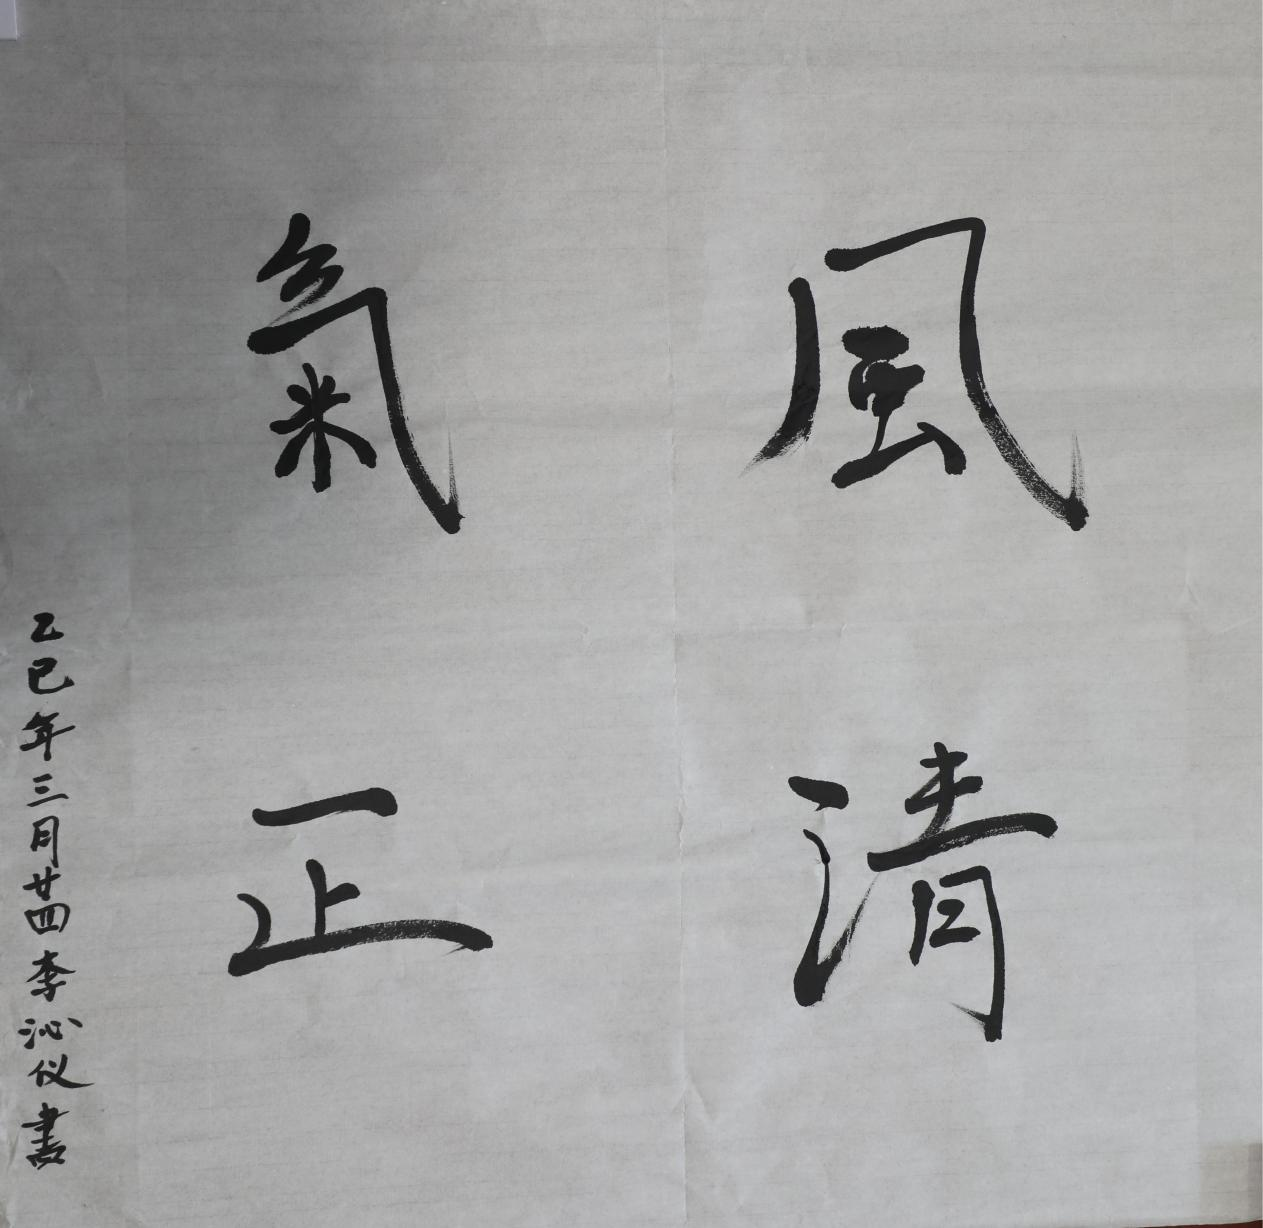 風清
氣正
乙巳年三月廿四李沁仪書